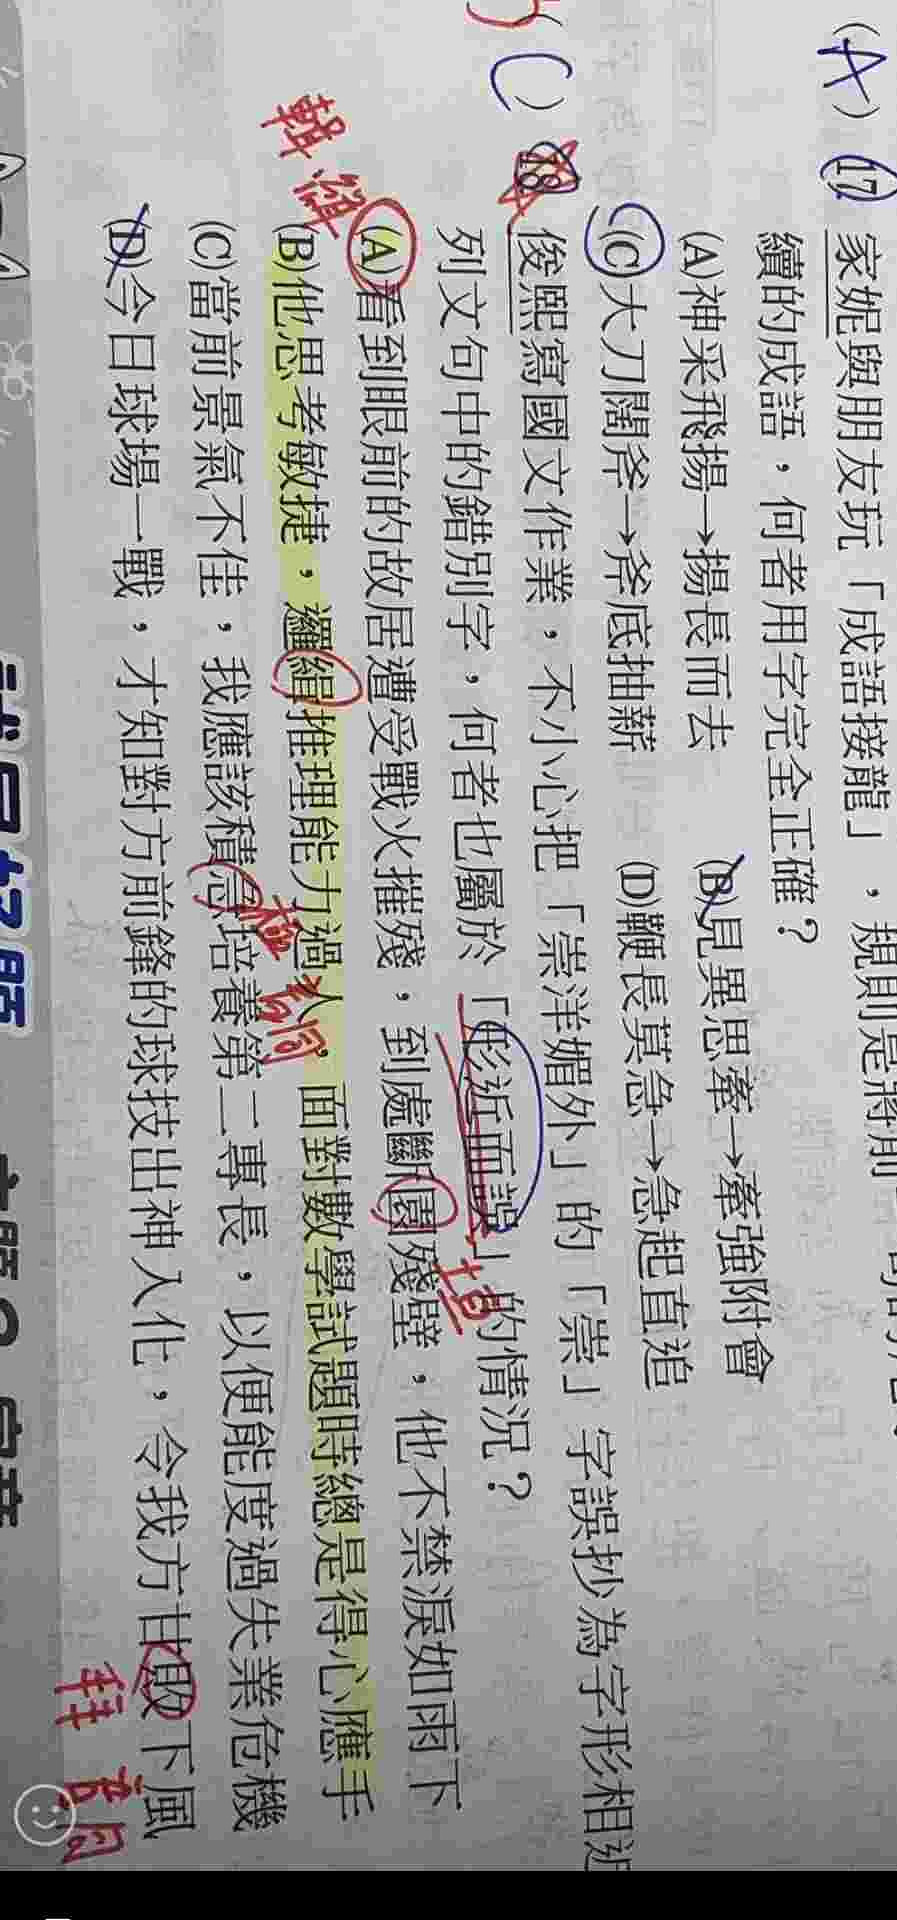 (A) 17 家妮與朋友玩「成語接龍」，規則是將前
續的成語，何者用字完全正確？
(A)神采飛揚→揚長而去 (B)見異思牽→牽強附會
(C)大刀闊斧→斧底抽薪 (D)鞭長莫急→急起直追
(C) 18 俊熙寫國文作業，不小心把「崇洋媚外」的「崇」字誤抄為字形相近
列文句中的錯別字，何者也屬於「形近而誤」的情況？
垣
(A)看到眼前的故居遭受戰火摧殘，到處斷園殘壁，他不禁淚如雨下
輯
(B)他思考敏捷，邏緝推理能力過人，面對數學試題時總是得心應手
極
(C)當前景氣不佳，我應該積急培養第二專長，以便能度過失業危機
(D)今日球場一戰，才知對方前鋒的球技出神入化，令我方甘敗下風
拜